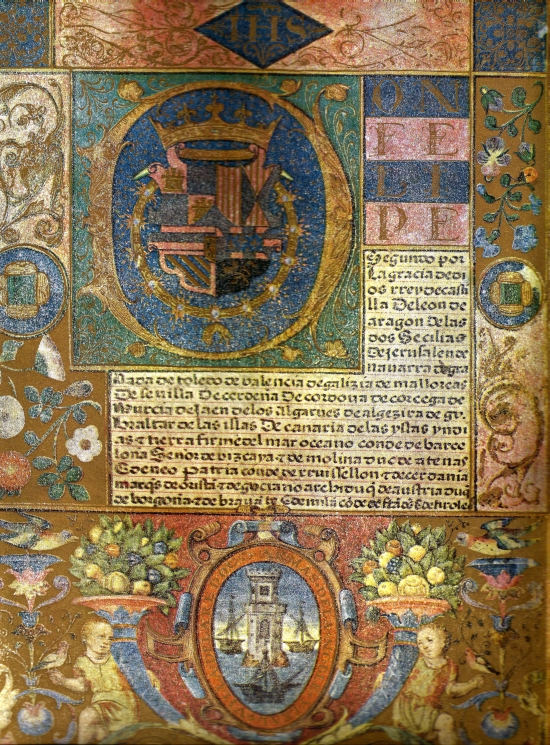 IHS
ON
FE
LI
PE
Segundo por
La gracia de di
os rrey de casti
lla De leon de
aragon De las
dos Secilias
De jerusalen de
navarra de gra
nada de toledo de valencia de galizia de mallorcas
De sevilla De cerdena De cordova de corcega de
Murcia de Jaen de los algarves de algezira de gi
braltar de las islas De canaria de las yslas yndi
as t tierra firme del mar oceano conde de barce
lona Señor de vizcaya t de molina duc de atenas
conde de rruisellon t de cerdania
marqs de de austria duq
de borgoña t de